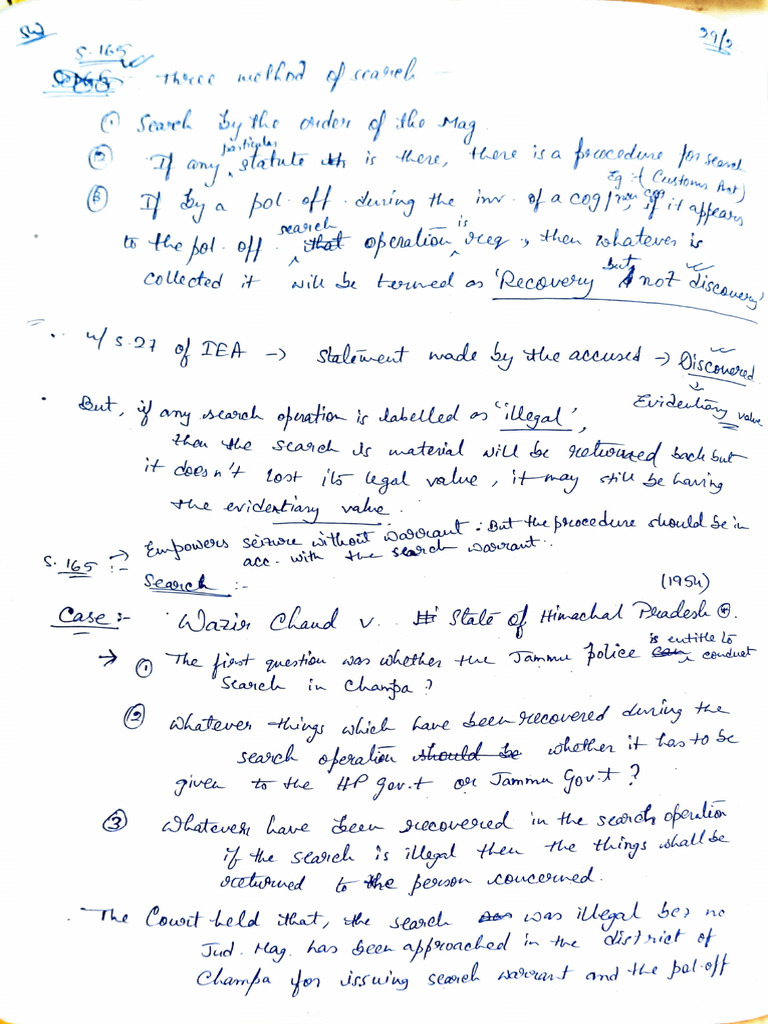 SW
29/2
S.165
three method of search
① Search by the order of the Mag.
② If any particular statute is there, there is a procedure for search
Eg :- (Customs Act)
③ If by a pol. off during the inv. of a cog/non cog, if it appears
to the pol. off. search operation is req, then whatever is
collected it will be termed as 'Recovery but not discovery'
• u/s.27 of IEA → Statement made by the accused → Discovered
↓
Evidentiary value
• But, if any search operation is labelled as 'illegal',
then the search is material will be returned back but
it doesn't lost its legal value, it may still be having
the evidentiary value.
S.165 :- → Empowers seizure without warrant. But the procedure should be in
acc. with the search warrant.
Search :-
(1954)
Case :- Wazir Chand v. State of Himachal Pradesh
→ ① The first question was whether the Jammu police is entitle to conduct
search in Champa?
② Whatever things which have been recovered during the
search operation should be whether it has to be
given to the HP Gov.t or Jammu Gov.t?
③ Whatever have been recovered in the search operation
if the search is illegal then the things shall be
returned to the person concerned.
. The Court held that, the search was illegal bcz no
Jud. Mag. has been approached in the district of
Champa for issuing search warrant and the pol.off